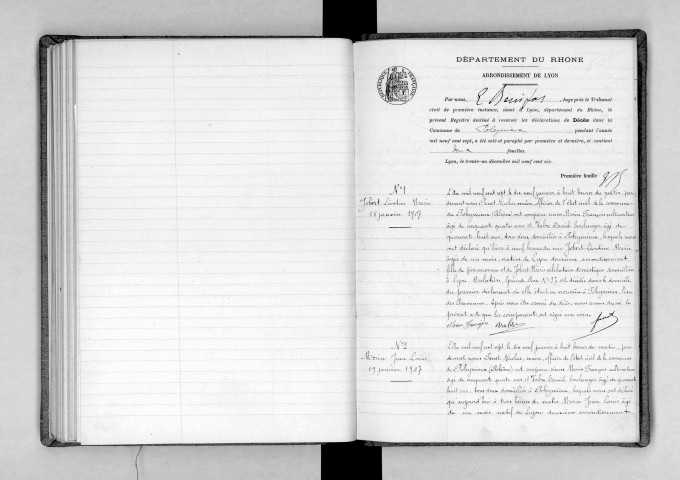 DÉPARTEMENT DU RHONE
ARRONDISSEMENT DE LYON
Par nous, Juge près le Tribunal
civil de première instance, séant à Lyon, département du Rhône, le
présent Registre destiné à recevoir les déclarations de Décès dans la
Commune de Poleymieux pendant l'année
mil neuf cent sept, a été coté et paraphé par première et dernière, et contient
deux feuilles.
Lyon, le trente-un décembre mil neuf cent six.
Première feuille
N°1
Jobert Marie
18 janvier 1907
L'an mil neuf cent sept le dix neuf janvier à huit heures du matin, par
devant nous Nicolas, maire, officier de l'état civil de la commune
de Poleymieux (Rhône) ont comparu sieurs Morin François cultivateur
âgé de cinquante quatre ans et Vabre boulanger âgé de
quarante huit ans, tous deux domiciliés à Poleymieux, lesquels nous
ont déclaré qu'hier à neuf heures du soir Jobert Marie
âgée de un mois, native de Lyon deuxième arrondissement
fille de et de Jobert Marie célibataire domestique domiciliée
à Lyon Grande Rue N° 27 est décédée dans le domicile
du premier déclarant où elle était en nourrice à Poleymieux, lieu
des Après nous être assuré du décès, nous avons dressé le
présent acte que les comparants ont signé avec nous.
Morin François Vabre
N°2
Morin Jean Louis
19 janvier 1907
L'an mil neuf cent sept le dix neuf janvier à huit heures du matin, par
devant nous Nicolas, maire, officier de l'état civil de la commune
de Poleymieux (Rhône) ont comparu sieurs Morin François cultivateur
âgé de cinquante quatre ans et Vabre boulanger âgé de quarante
huit ans, tous deux domiciliés à Poleymieux, lesquels nous ont déclaré
qu'aujourd'hui à trois heures du matin Morin Jean Louis âgé
de un mois natif de Lyon deuxième arrondissement,